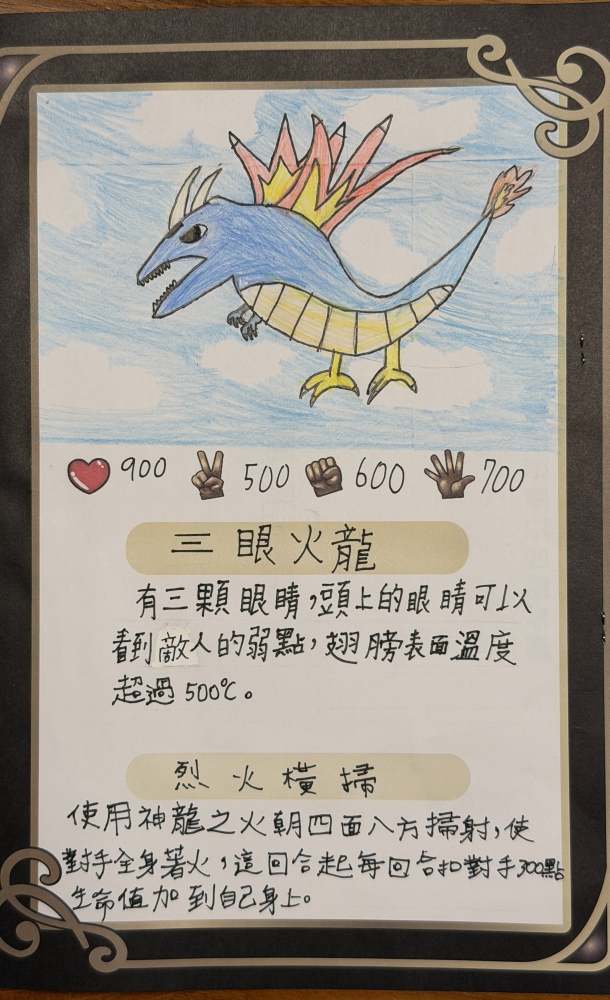 900 500 600 700
三眼火龍
有三顆眼睛，頭上的眼睛可以
看到敵人的弱點，翅膀表面溫度
超過500℃。
烈火橫掃
使用神龍之火朝四面八方掃射，使
對手全身著火，這回合起每回合扣對手300點
生命值加到自己身上。